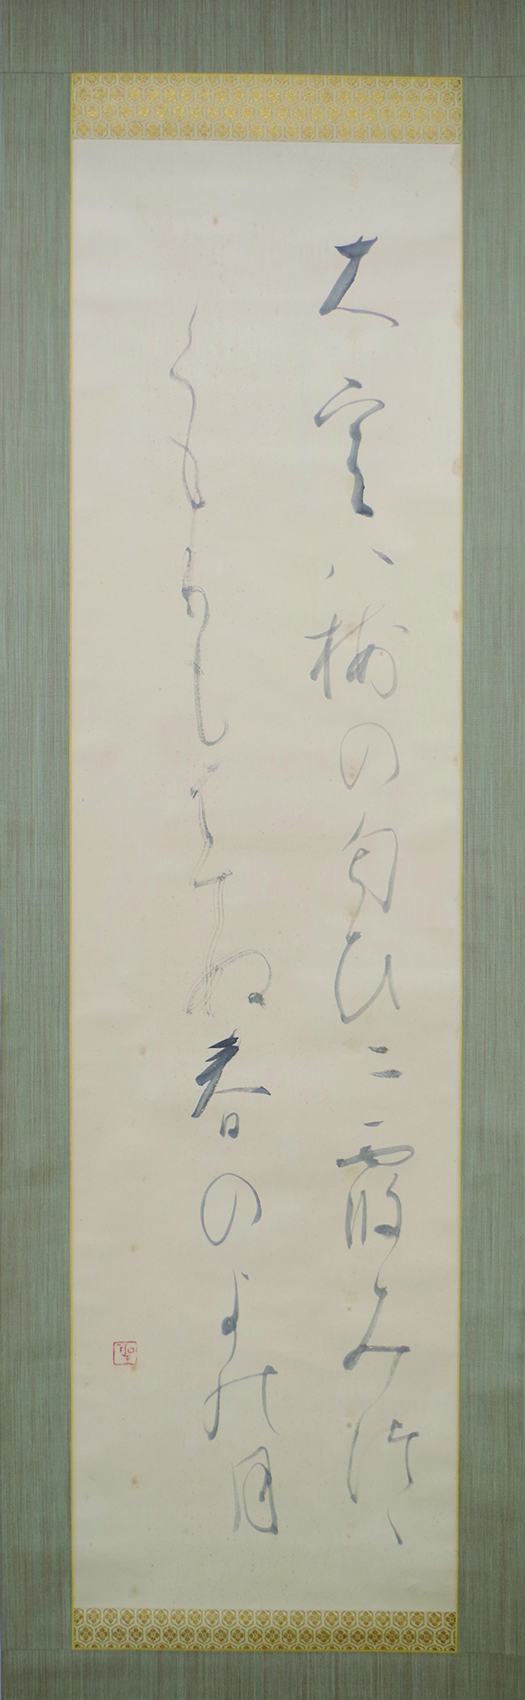 大空ハ梅の匂ひニ霞みつゝ
くもりもはてぬ春のよの月